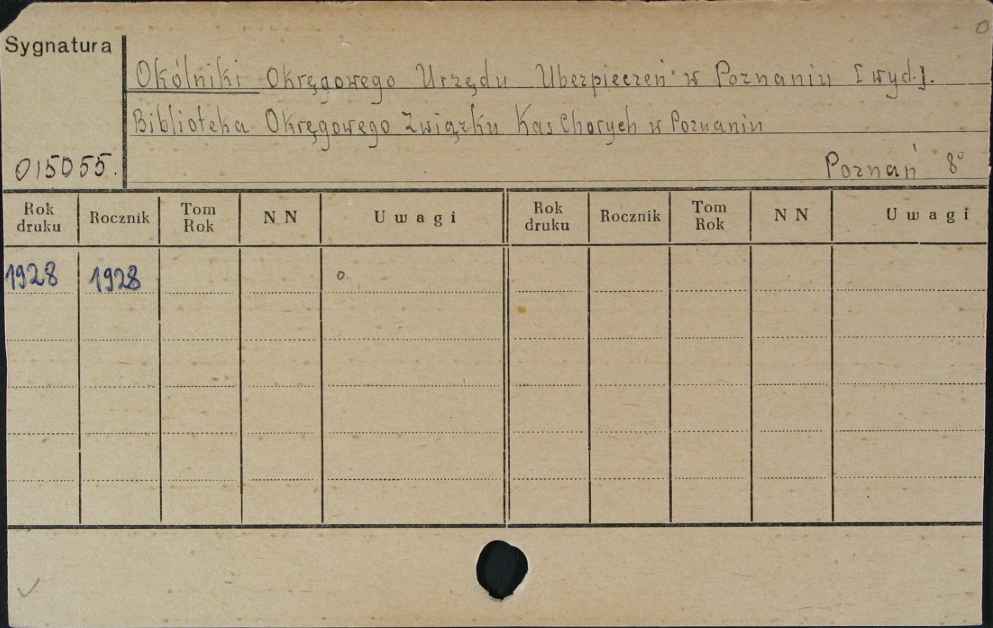 Sygnatura
Okólniki Okręgowego Urzędu Ubezpieczeń w Poznaniu [wyd.].
Biblioteka Okręgowego Związku Kas Chorych w Poznaniu
015055. Poznań 8°
Rok druku Rocznik Tom Rok N N Uwagi Rok druku Rocznik Tom Rok N N Uwagi
1928 1928 o